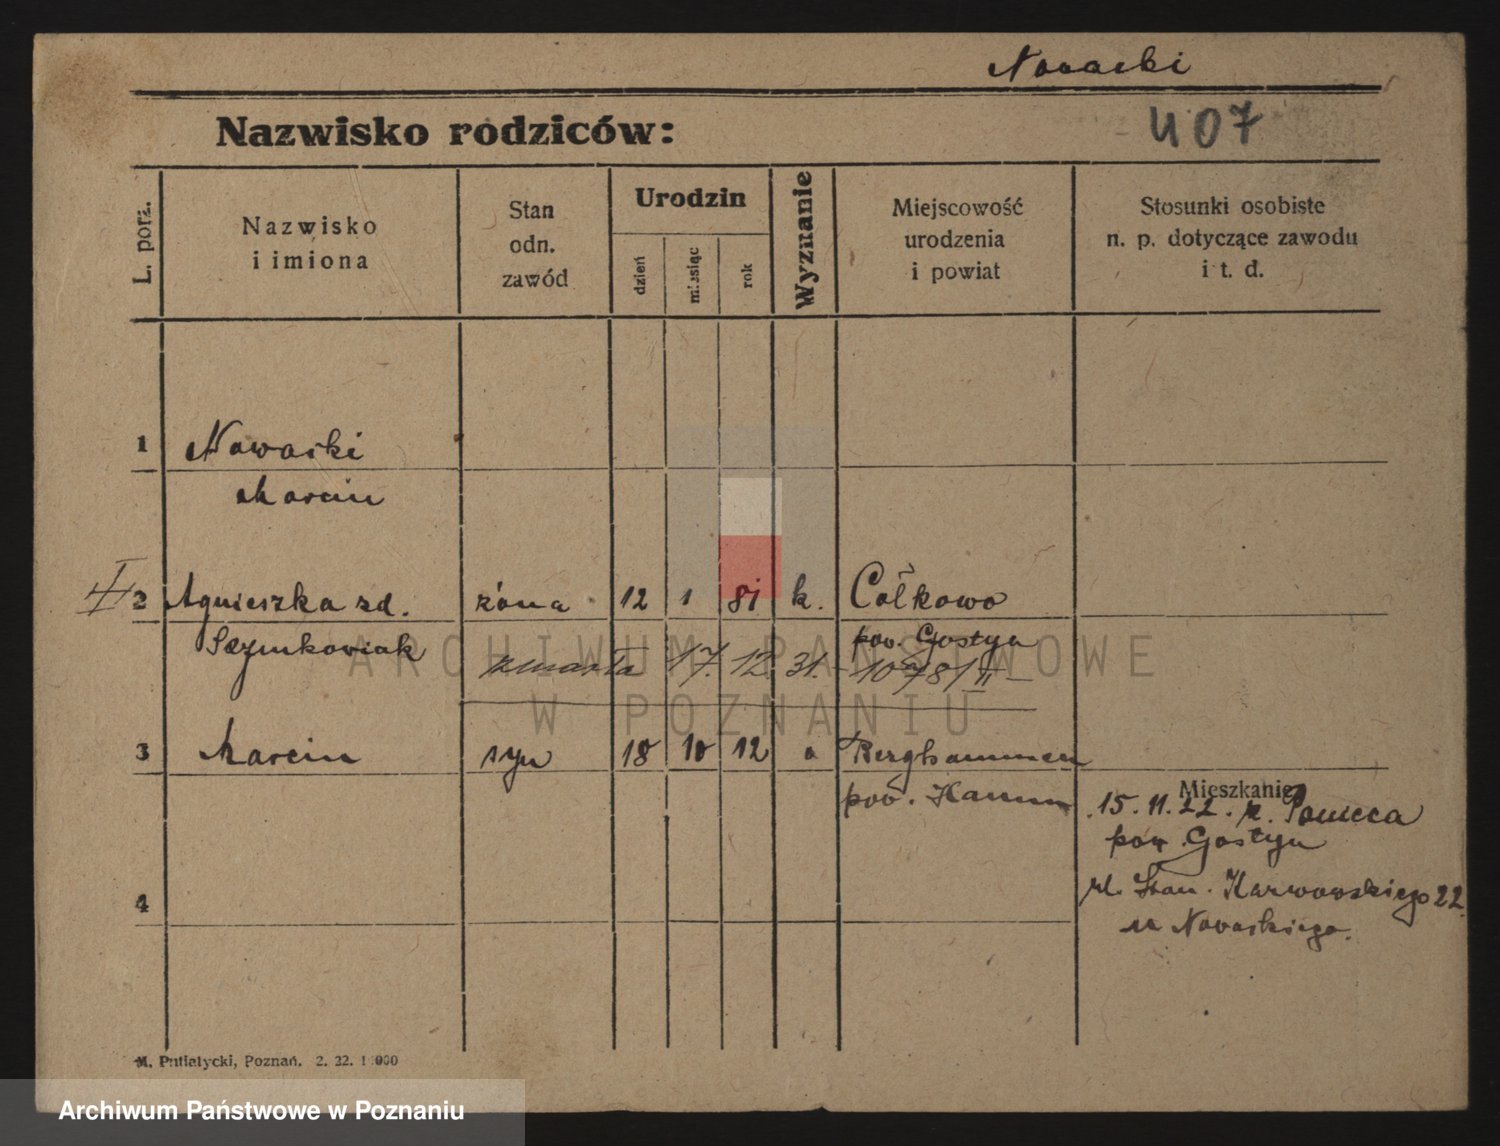 Nowacki
Nazwisko rodziców:
407
L. porz.
Nazwisko
i imiona
Stan
odn.
zawód
Urodzin
dzień
miesiąc
rok
Wyznanie
Miejscowość
urodzenia
i powiat
Stosunki osobiste
n. p. dotyczące zawodu
i t. d.
1 Nowacki
Marcin
II 2 Agnieszka zd. żona 12 1 81 k. Cołkowo
Szymkowiak pow. Gostyn
zmarła 17. 12. 31. - 10781/II -
3 Marcin syn 18 10 12 Berghammen
pow. Hamm
Mieszkanie
15. 11. 22. z. Ponieca
pow. Gostyn
ul. Stan. Karwowskiego 22
u Nowackiego.
4
M. Putiatycki, Poznań. 2. 22. 1.000
ARCHIWUM PAŃSTWOWE
W POZNANIU
Archiwum Państwowe w Poznaniu